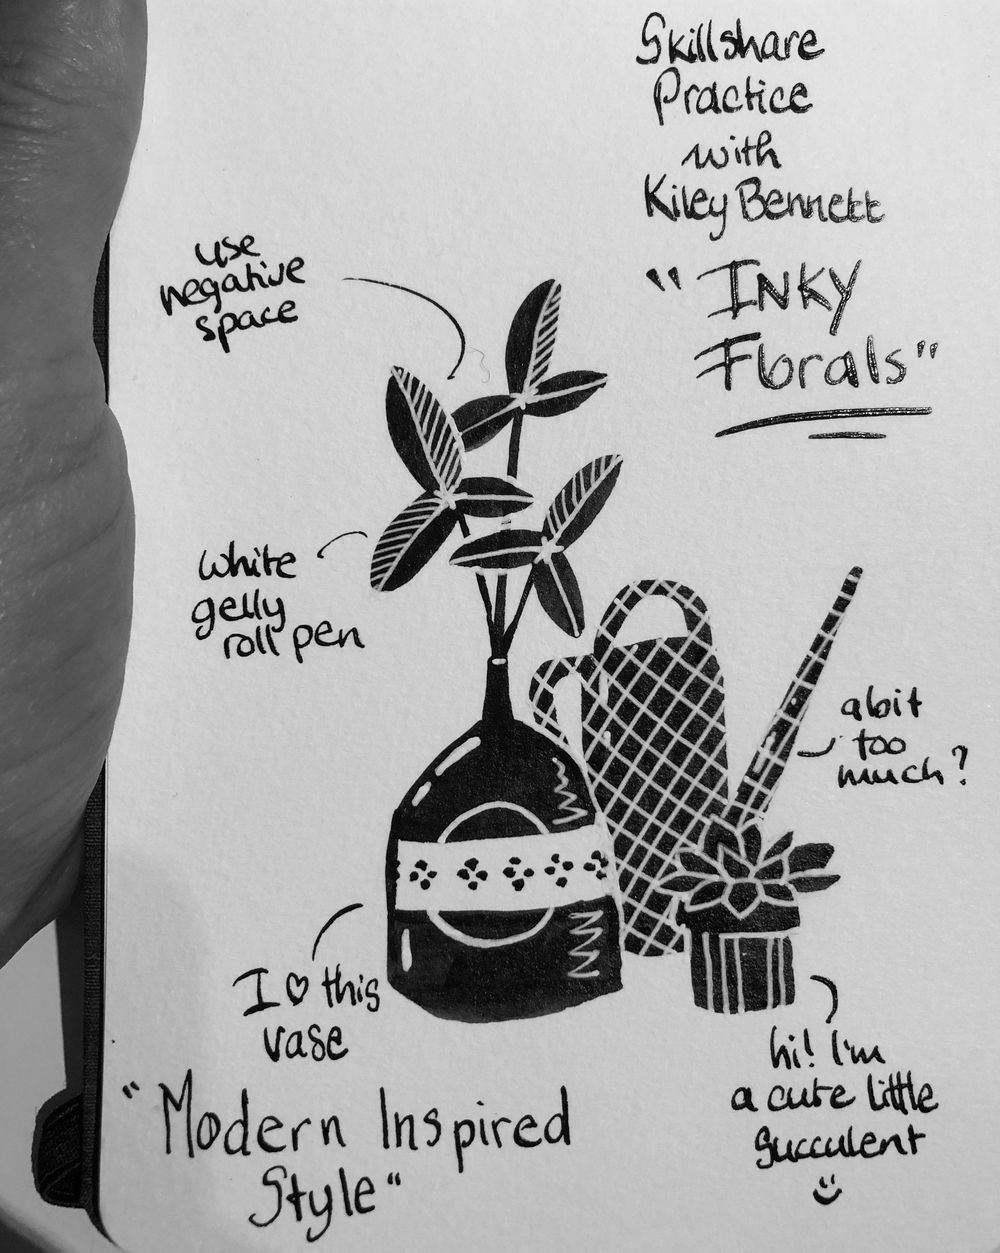 Skillshare
Practice
with
Kiley Bennett
"INKY
Florals"
use
negative
space
white
gelly
roll pen
a bit
too
much?
I ♡ this
vase
hi! I'm
a cute little
succulent
"Modern Inspired
Style"